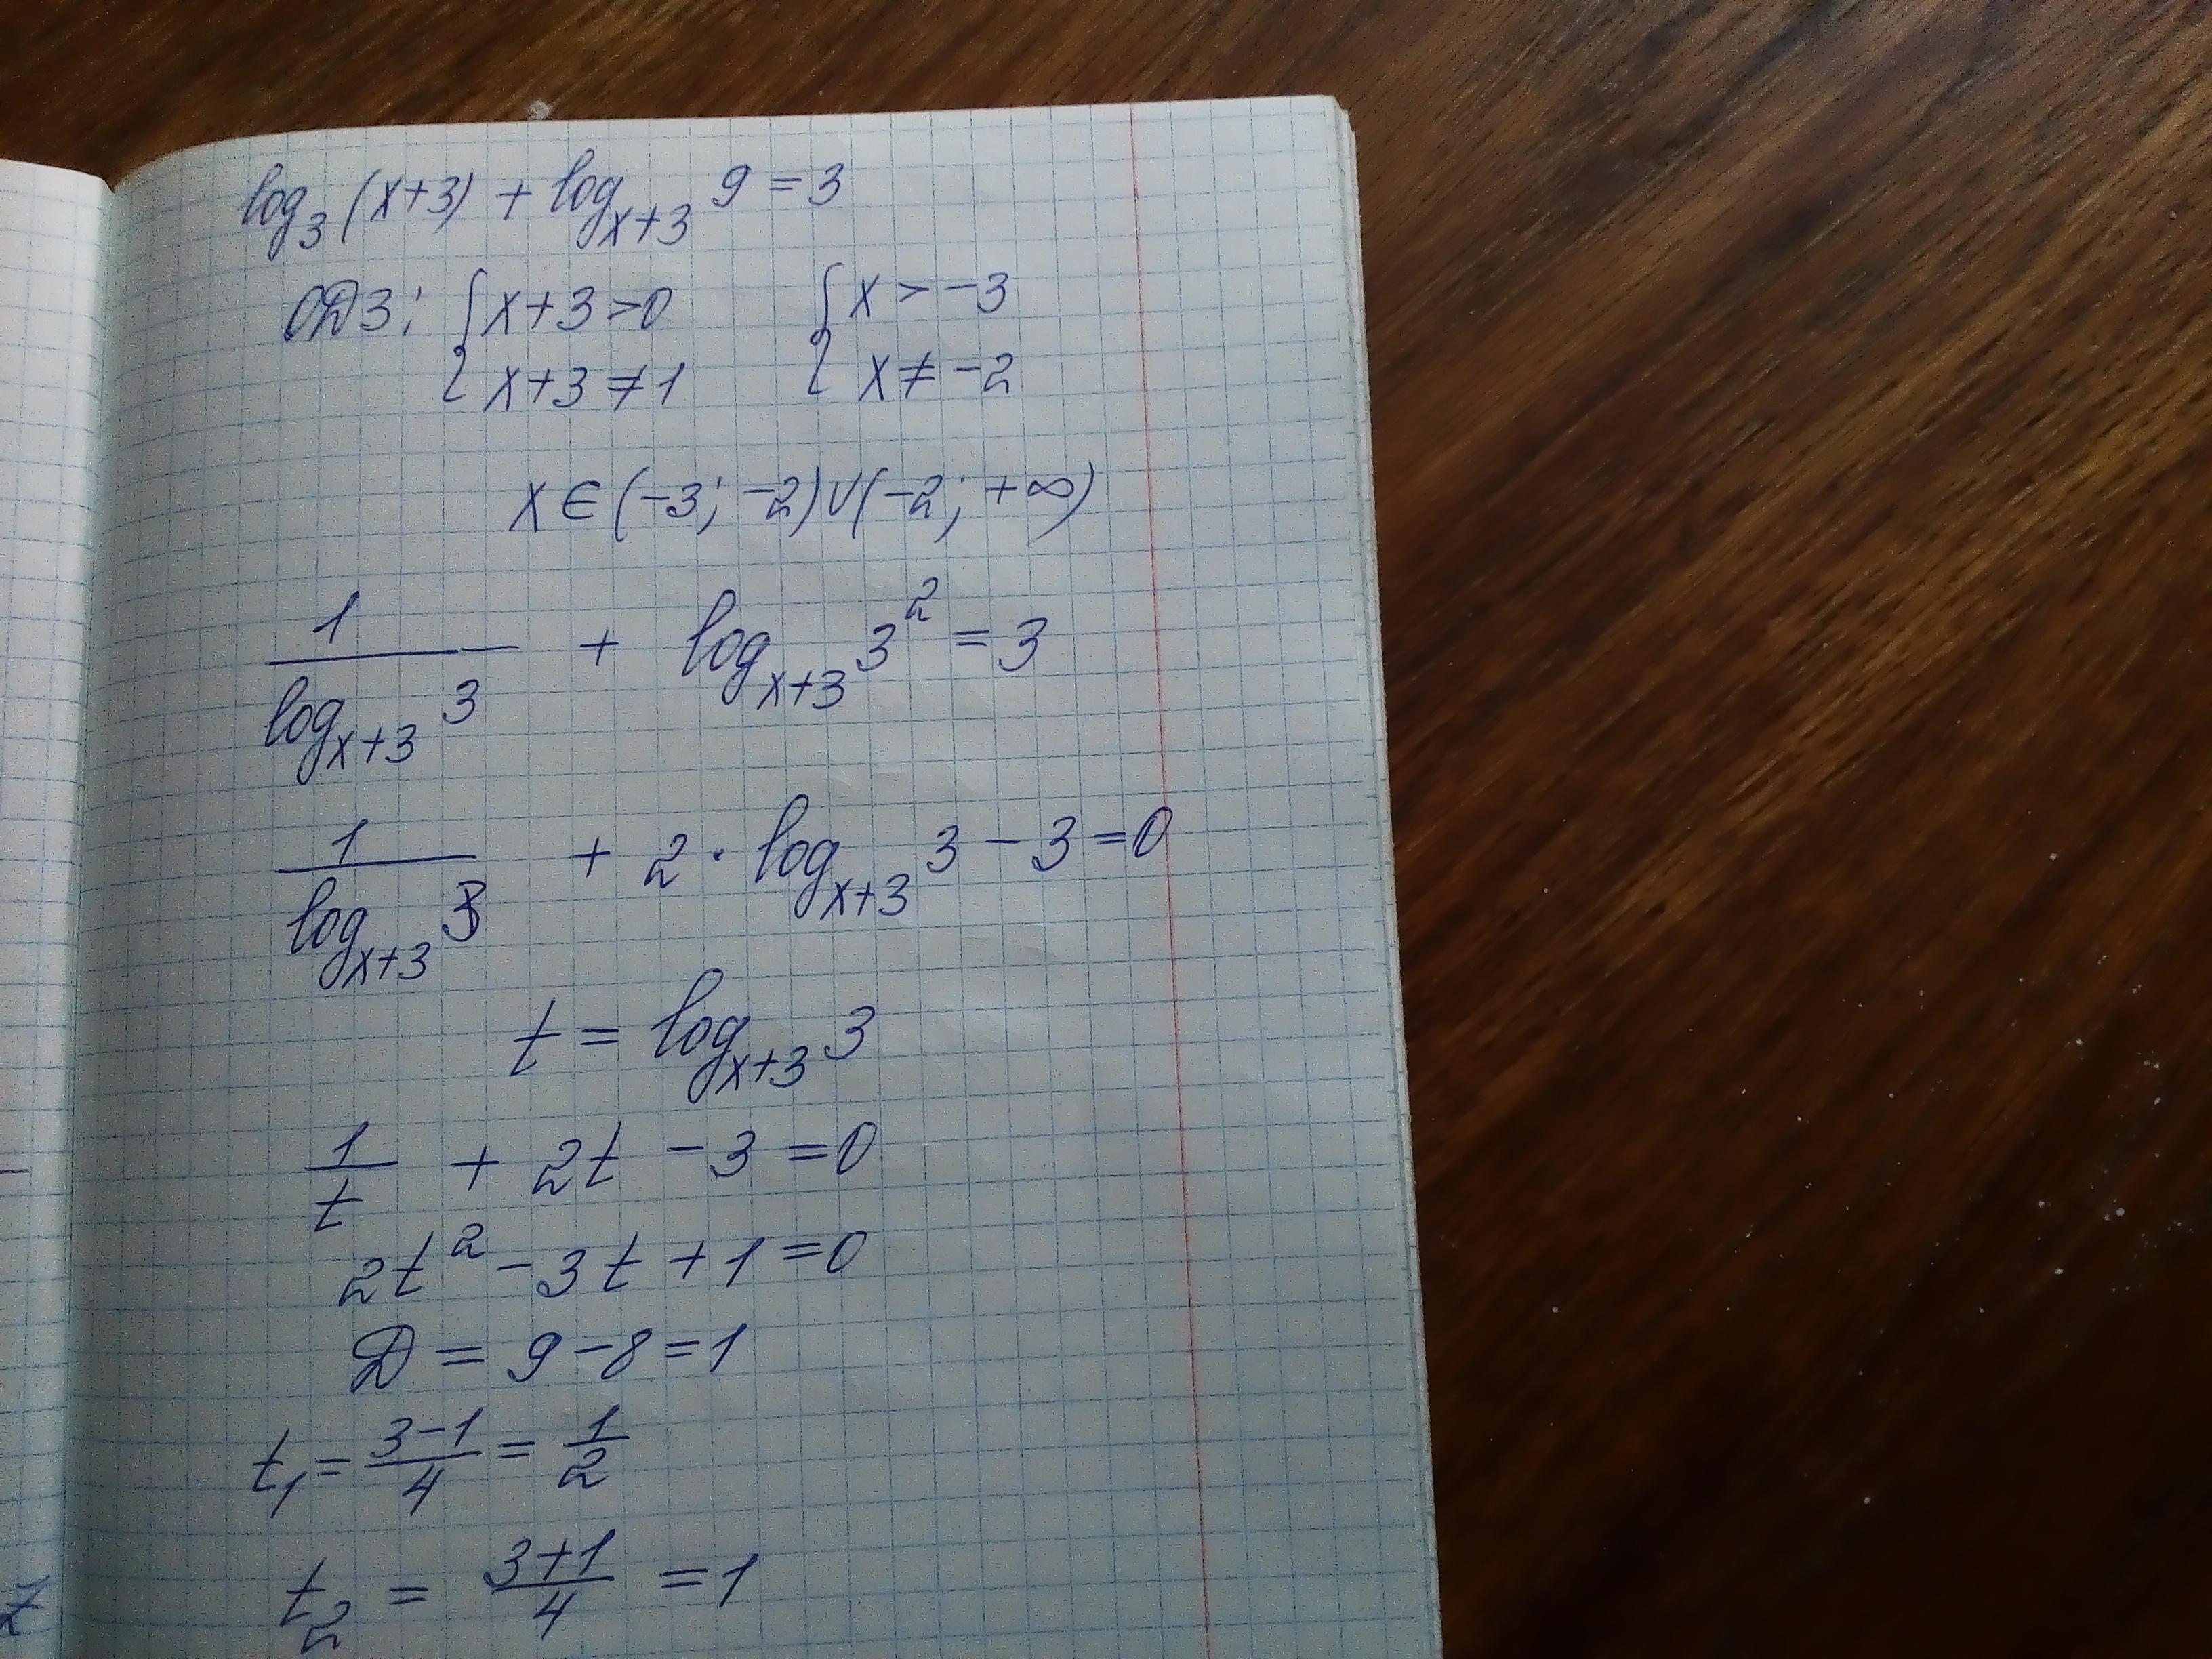 log₃(x+3) + logₓ₊₃ 9 = 3
ОДЗ: { x+3>0 { x > -3
x+3 ≠ 1 x ≠ -2
x ∈ (-3; -2) ∪ (-2; +∞)
1/(logₓ₊₃ 3) + logₓ₊₃ 3² = 3
1/(logₓ₊₃ 3) + 2 · logₓ₊₃ 3 - 3 = 0
t = logₓ₊₃ 3
1/t + 2t - 3 = 0
2t² - 3t + 1 = 0
Д = 9 - 8 = 1
t₁ = (3-1)/4 = 1/2
t₂ = (3+1)/4 = 1